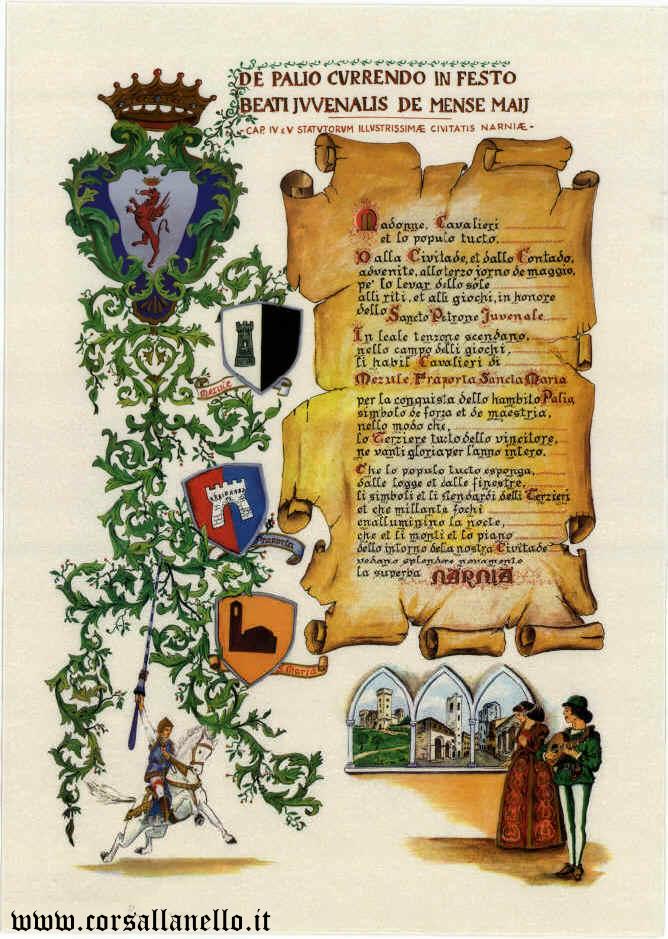 DE PALIO CVRRENDO IN FESTO
BEATI JVVENALIS DE MENSE MAIJ
- CAP. IV & V STATVTORUM ILLUSTRISSIMÆ CIVITATIS NARNIÆ -
Madonne, Cavalieri
et lo populo tucto.
Dalla Civitade, et dallo Contado,
advenite, allo terzo jorno de maggio,
pe' lo levar dello sole
alli riti, et alli giochi, in honore
dello Sancto Petrone Juvenale
In leale tenzone scendano,
nello campo delli giochi,
li habil Cavalieri di
Mezule, Fraporta, Sancta Maria
per la conquista dello hambito Palio
simbolo de forza et de maestria,
nello modo che,
lo Terziere tucto dello vincitore,
ne vanti gloria per l'anno intero.
Che lo populo tucto esponga,
dalle logge et dalle finestre,
li simboli et li stendardi delli Terzieri
et che millanta fochi
enalluminino la nocte,
che et li monti et lo piano
dello intorno de la nostra Civitade
vedano splendere novamente
la superba NARNIA
Mezule
Fraporta
S. Maria
www.corsallanello.it